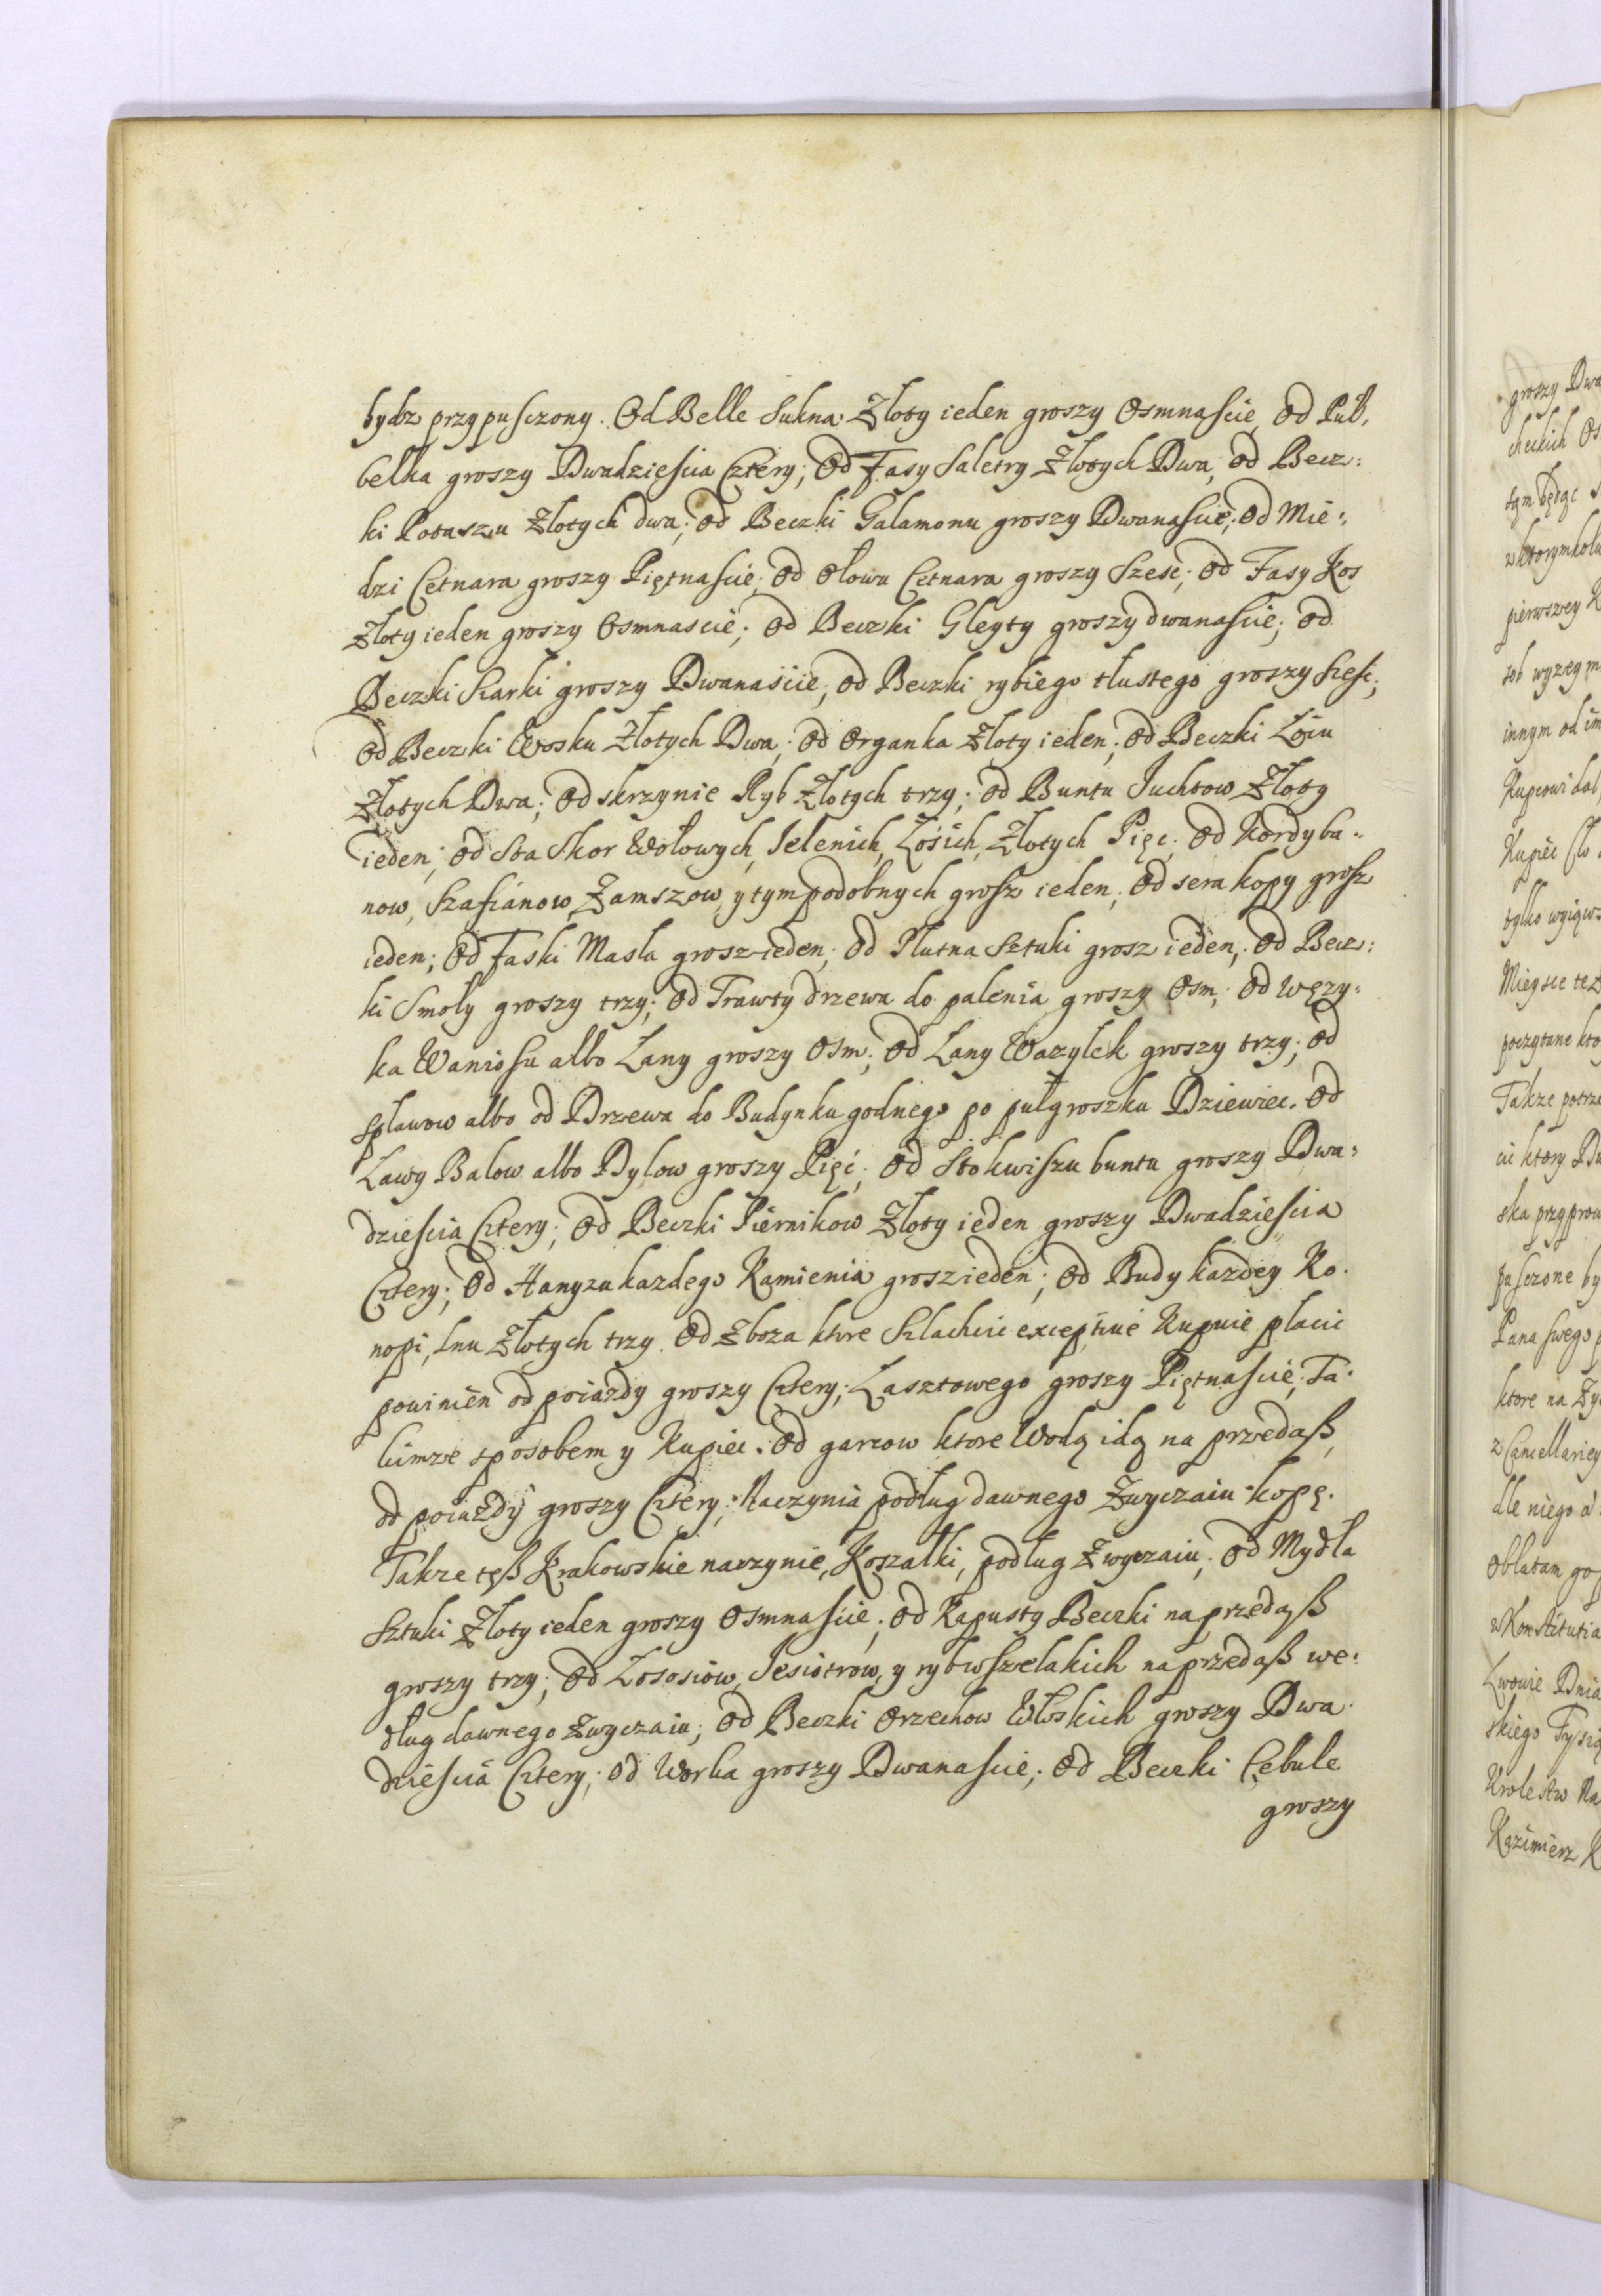 bydz przypusczony. Od Belle Sukna Złoty ieden groszy Osmnascie, od Puł,
belka groszy Dwadziescia Cztery; Od Fasy Saletry Złotych Dwa, od Becz:
ki Potaszu Złotych dwa; od Beczki Galamonu groszy Dwanascie; Od Mie:,
dzi Cetnara groszy Piętnascie; od ołowu Cetnara groszy Szesc; od Fasy Kos
Złoty ieden groszy Osmnascie; od Beczki Gleyty groszy dwanascie; od
Beczki Siarki groszy Dwanaście, od Beczki rybiego tłustego groszy Szesc;
od Beczki Wosku Złotych Dwa; od Organka Złoty ieden; od Beczki Łoiu
Złotych Dwa; od skrzynie Ryb Złotych trzy; od Buntu Juchtow Złoty
ieden; od Sta Skor Wołowych, Jelenich, Łosich, Złotych Pięc; od Kordyba:,
now, Szafianow, Zamszow, y tym podobnych grosz ieden; od sera kopy grosz
ieden; od Faski Masła grosz ieden; od Płutna Sztuki grosz ieden; od Becz:
ki Smoły groszy trzy; od Trawty drzewa do palenia groszy Osm; od Węzy:
ka Waniosu albo Lany groszy Osm; od Lany Wazylek groszy trzy; od
spławow albo od Drzewa do Budynku godnego po pułgroszku Dziewiec. Od
Ławy Balow albo Dylow groszy Pięć; od Stokwiszu buntu groszy Dwa:
dziescia Cztery; od Beczki Piernikow Złoty ieden groszy Dwadziescia
Cztery; od Hanyzu kazdego Kamienia grosz ieden; od Budy kazdey Ko.
nopi, lnu Złotych trzy. Od Zboza ktore Szlachcic exceptive Kupuie płacic
powinien od poiazdy groszy Cztery; Lasztowego groszy Piętnascie; Ta.
kimze sposobem y Kupiec. Od garcow ktore Wodą idą na przedaß,
od poiazdy groszy Cztery; Naczynia podług dawnego Zwyczaiu kopę.
Takze teß Krakowskie naczynie, Koszałki, podług Zwyczaiu; od Mydła
Sztuki Złoty ieden groszy Osmnascie; od Kapusty Beczki na przedaß
groszy trzy; od Łososiow, Jesiotrow, y ryb wszelakich na przedaß we:
dług dawnego Zwyczaiu; od Beczki Orzechow Włoskich groszy Dwa
dziescia Cztery; od Worka groszy Dwanascie; od Beczki Cebule
groszy
groszy Dwa
tym będąc
w ktorymkol
pierwszey
innym od
Kupcowi
Kupiec
tylko
Mieysce tez
poczytane
Takze
ci ktory
ska
pusczone by
Pana swego
ktore na
z Cancellariey
dle niego
Oblatam
w Konstitutia
Lwowie Dnia
skiego Tysią
Krolestw Na
Kazimierz K